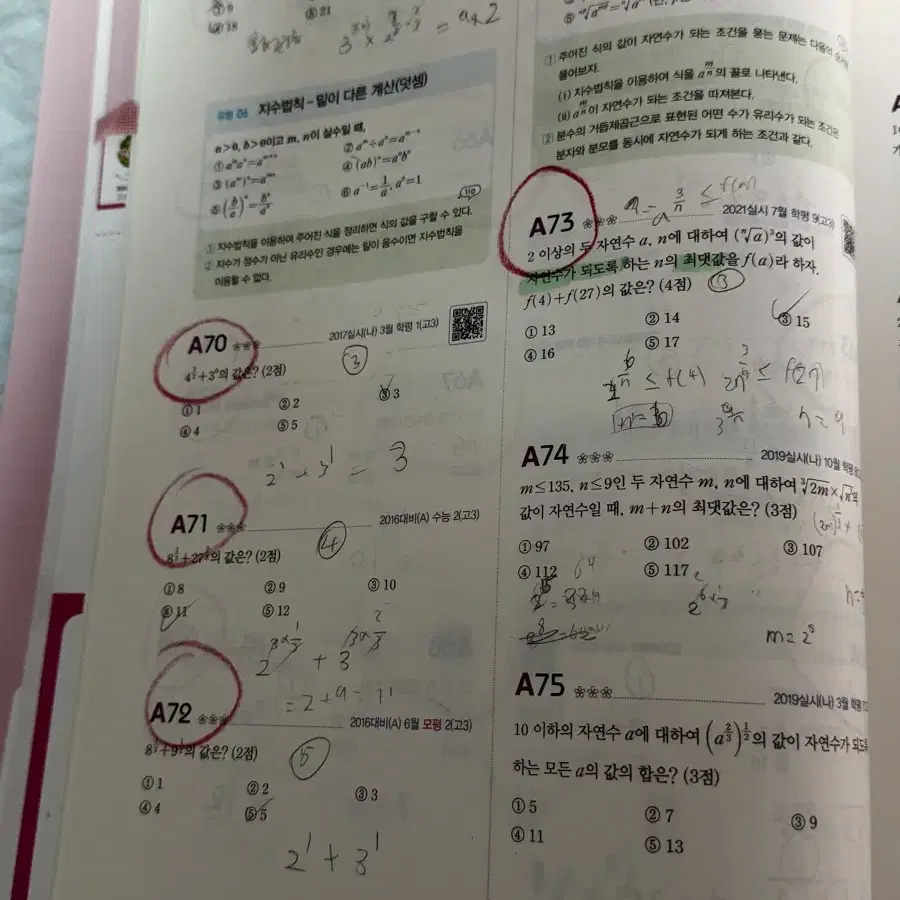 ① 9
④ 18
⑤ 21
유형 06 지수법칙 - 밑이 다른 계산(덧셈)
a>0, b>0이고 m, n이 실수일 때,
① aᵐaⁿ=aᵐ⁺ⁿ ② aᵐ÷aⁿ=aᵐ⁻ⁿ
③ (aᵐ)ⁿ=aᵐⁿ ④ (ab)ⁿ=aⁿbⁿ
⑤ (b/a)ⁿ=bⁿ/aⁿ ⑥ a⁻¹=1/a, a⁰=1
tip
① 지수법칙을 이용하여 주어진 식을 정리하면 식의 값을 구할 수 있다.
② 지수가 정수가 아닌 유리수인 경우에는 밑이 음수이면 지수법칙을
이용할 수 없다.
A70
2017실시(나) 3월 학평 1(고3)
의 값은? (2점) ③
① 1 ② 2 ③ 3
④ 4 ⑤ 5
2¹ + 3¹ = 3
A71
2016대비(A) 수능 2(고3)
의 값은? (2점) ④
① 8 ② 9 ③ 10
④ 11 ⑤ 12
= 2+9 = 11
A72
2016대비(A) 6월 모평 2(고3)
의 값은? (2점) ⑤
① 1 ② 2 ③ 3
④ 4 ⑤ 5
2¹ + 3¹
① 주어진 식의 값이 자연수가 되는 조건을 묻는 문제는 다음의
풀어보자.
(i) 지수법칙을 이용하여 식을 a^(m/n)의 꼴로 나타낸다.
(ii) a^(m/n)이 자연수가 되는 조건을 따져본다.
② 분수의 거듭제곱근으로 표현된 어떤 수가 유리수가 되는 조건은
분자와 분모를 동시에 자연수가 되게 하는 조건과 같다.
A73
2021실시 7월 학평 9(고3)
2 이상의 두 자연수 a, n에 대하여 (ⁿ√a)³의 값이
자연수가 되도록 하는 n의 최댓값을 f(a)라 하자.
f(4)+f(27)의 값은? (4점) ③
① 13 ② 14 ③ 15
④ 16 ⑤ 17
≤ f(4) ≤ f(27)
n = 9
A74
2019실시(나) 10월 학평
m≤135, n≤9인 두 자연수 m, n에 대하여 ³√2m×√n³의
값이 자연수일 때, m+n의 최댓값은? (3점)
① 97 ② 102 ③ 107
④ 112 ⑤ 117
64
A75
2019실시(나) 3월
10 이하의 자연수 a에 대하여 (a^(2/3))^(1/2)의 값이 자연수가 되도록
하는 모든 a의 값의 합은? (3점)
① 5 ② 7 ③ 9
④ 11 ⑤ 13